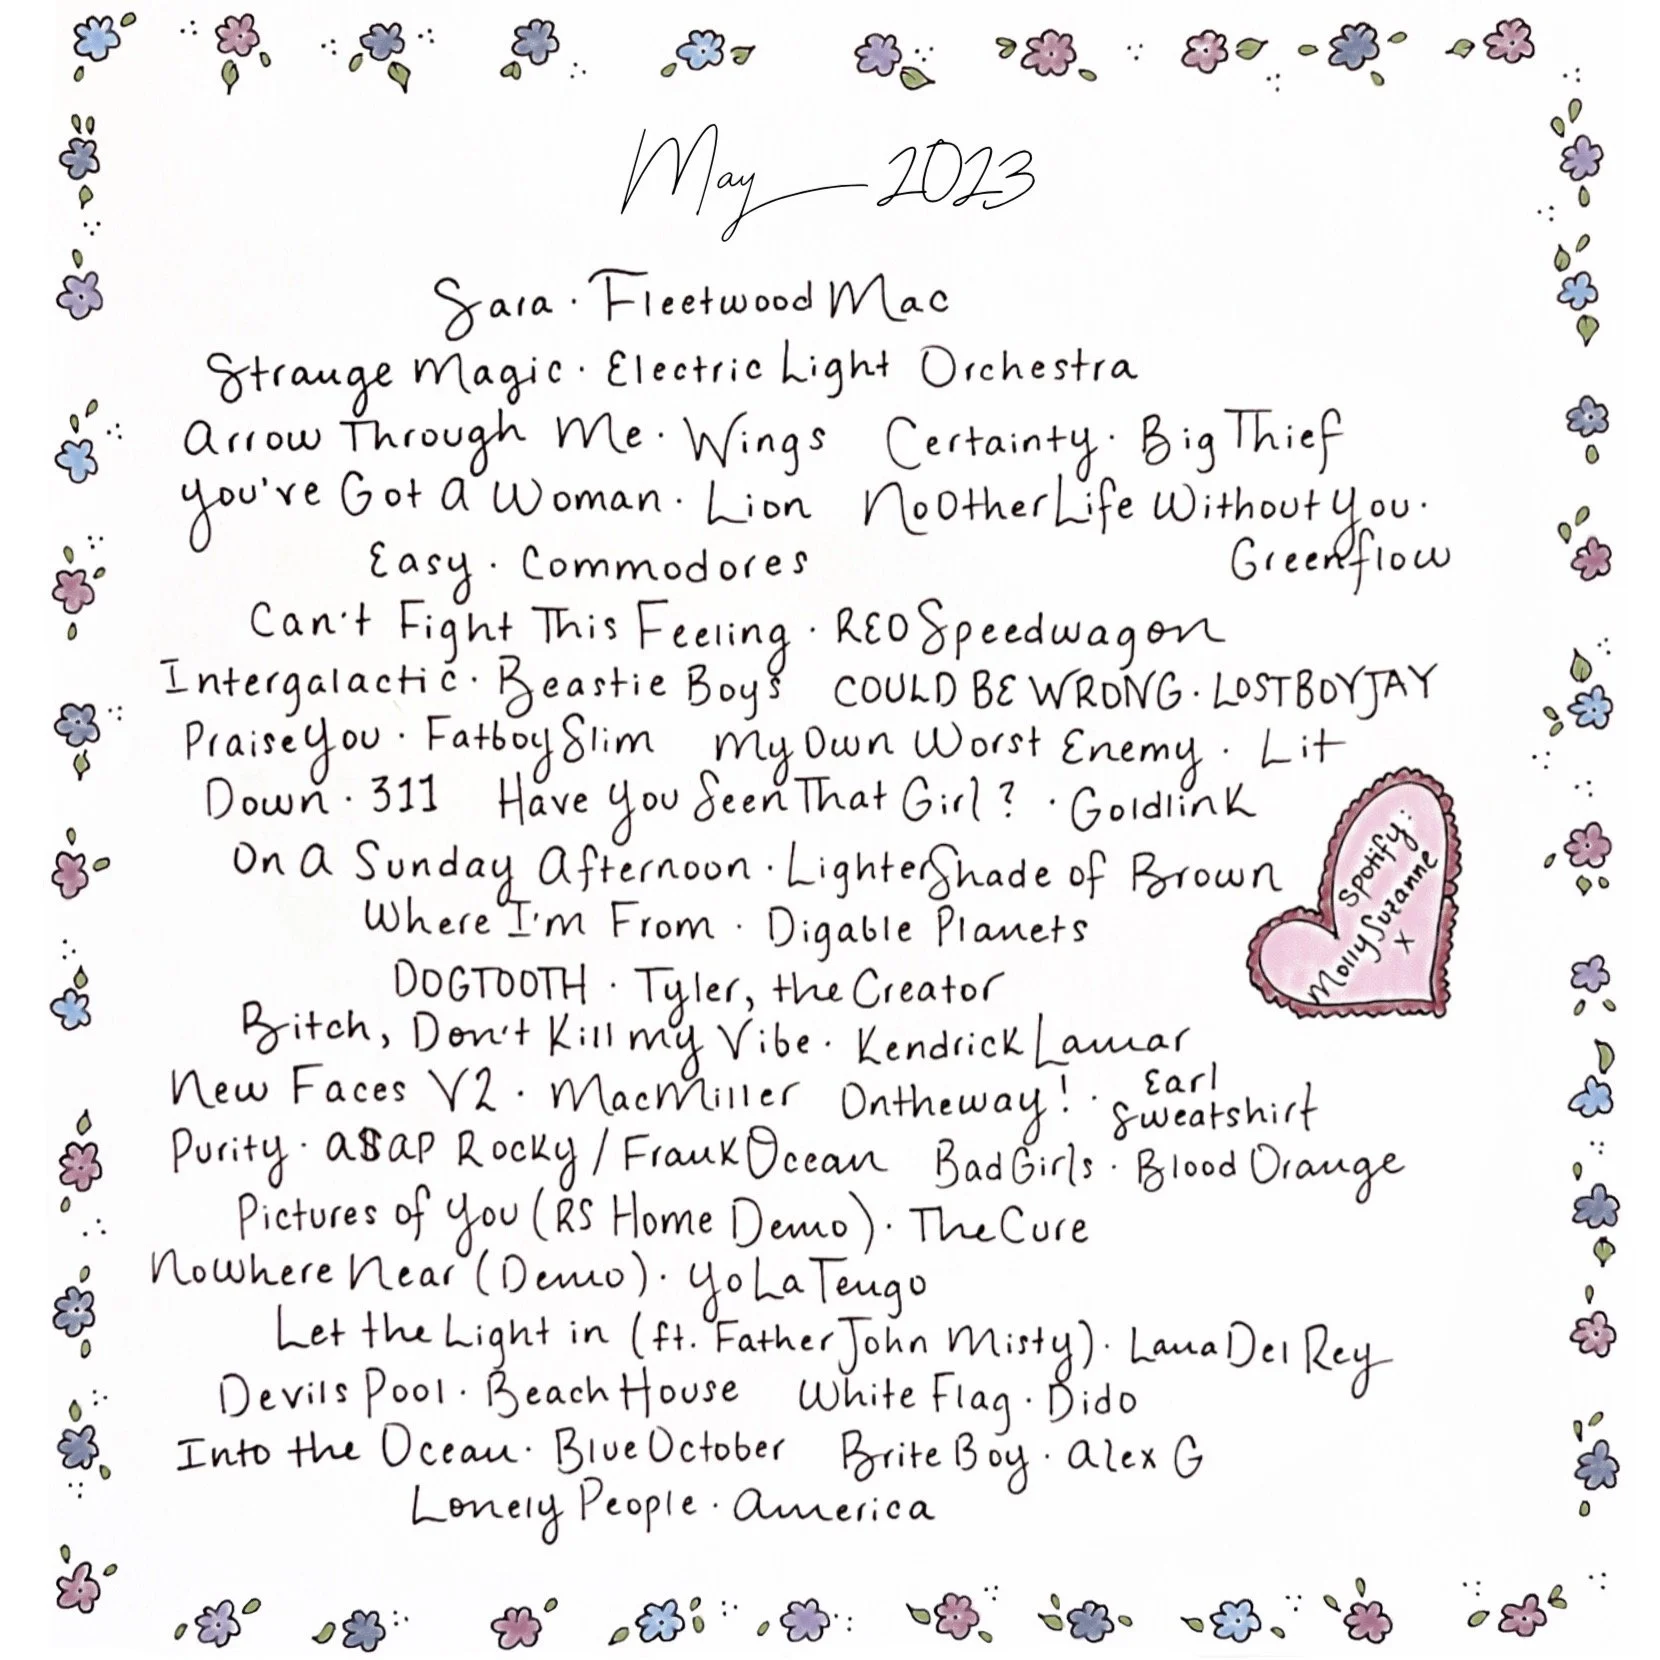 May 2023
Sara · Fleetwood Mac
Strange Magic · Electric Light Orchestra
Arrow Through Me · Wings Certainty · Big Thief
You've Got A Woman · Lion No Other Life Without You ·
Easy · Commodores Greenflow
Can't Fight This Feeling · REO Speedwagon
Intergalactic · Beastie Boys COULD BE WRONG · LOSTBOYJAY
Praise You · Fatboy Slim My Own Worst Enemy · Lit
Down · 311 Have You Seen That Girl? · Goldlink
On A Sunday Afternoon · Lighter Shade of Brown
Where I'm From · Digable Planets
DOGTOOTH · Tyler, the Creator
Bitch, Don't Kill my Vibe · Kendrick Lamar
New Faces V2 · Mac Miller Ontheway! · Earl
Sweatshirt
Purity · A$AP Rocky / Frank Ocean Bad Girls · Blood Orange
Pictures of You (RS Home Demo) · The Cure
Nowhere Near (Demo) · Yo La Tengo
Let the Light in (ft. Father John Misty) · Lana Del Rey
Devils Pool · Beach House White Flag · Dido
Into the Ocean · Blue October Brite Boy · Alex G
Lonely People · America
Spotify:
MollySuzanne
x